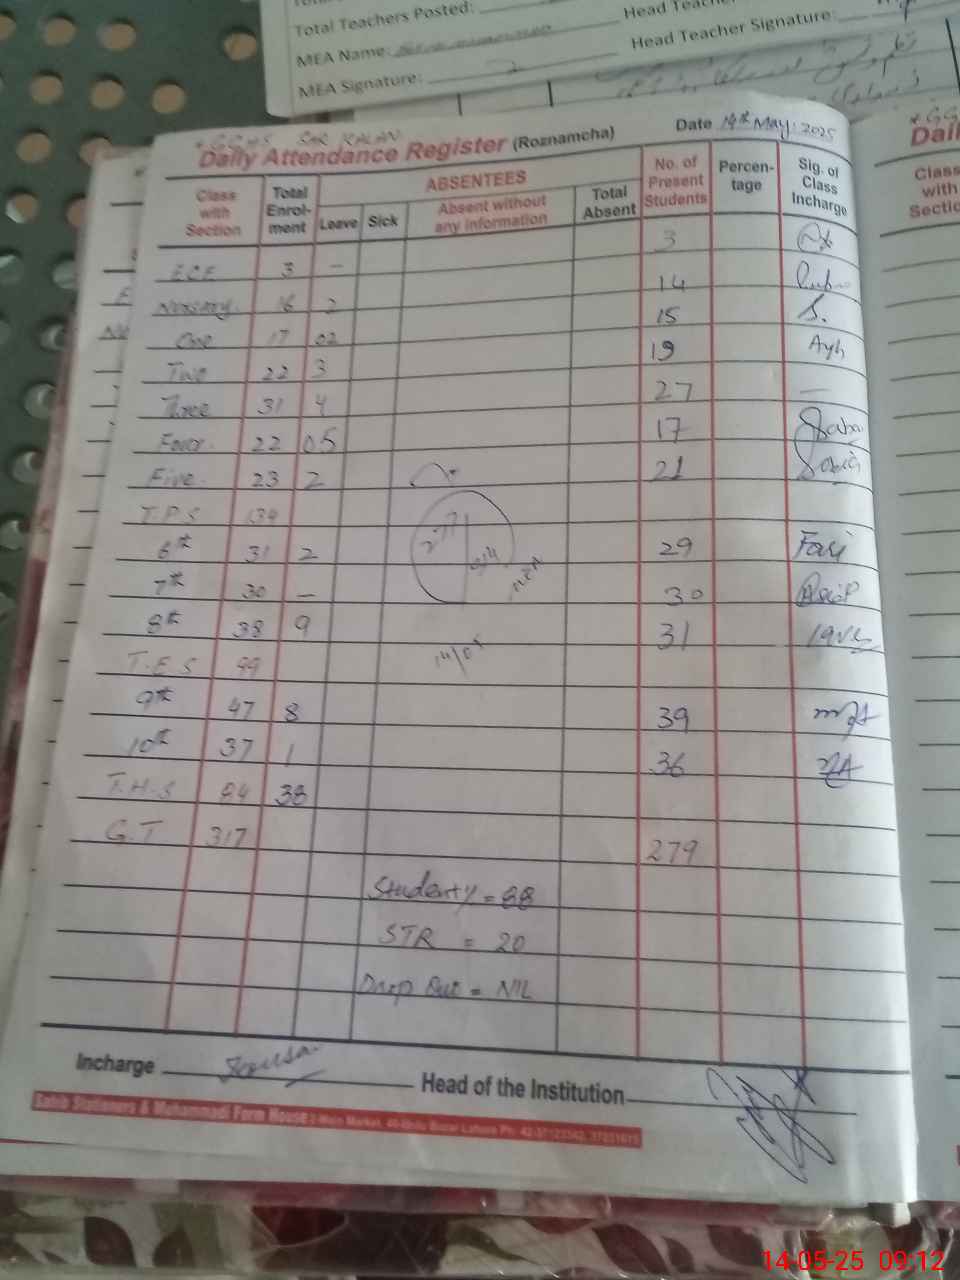 Total Teachers Posted:
Head Teacher
MEA Name:
Head Teacher Signature:
MEA Signature:
GGHS SAR KALAN
Date 14th May, 2025
Daily Attendance Register (Roznamcha)
Class with Section Total Enrol-ment ABSENTEES Leave Sick Absent without any information Total Absent No. of Present Students Percen-tage Sig. of Class Incharge
ECE 3 – 3
Nursery. 16 2 14
One 17 02 15 S.
Two 22 3 19 Ayh
Three 31 4 27 —
Four. 22 05 17 Saba
Five. 23 2 21 Sobia
T.P.S 134
6th 31 2 29
7th 30 – 30
8th 38 9 31
14/05
T.E.S 99
9th 47 8 39
10th 37 1 36
T.H.S 84 38
G.T 317 279
Students = 88
STR = 20
Drop Out = NIL
Incharge
Head of the Institution
Habib Stationers & Muhammadi Form House 2-Main Market, 40-Urdu Bazar Lahore Ph:
Class
with
Sectio
14-05-25 09:12